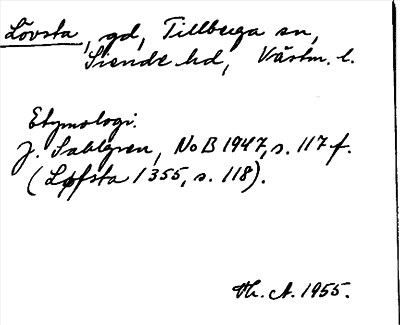 Lövsta, gd, Tillberga sn,
Siende hd, Västm. l.
Etymologi:
J. Sahlgren, NoB 1947, s. 117 f.
(Løfsta 1355, s. 118).
Th. A. 1955.